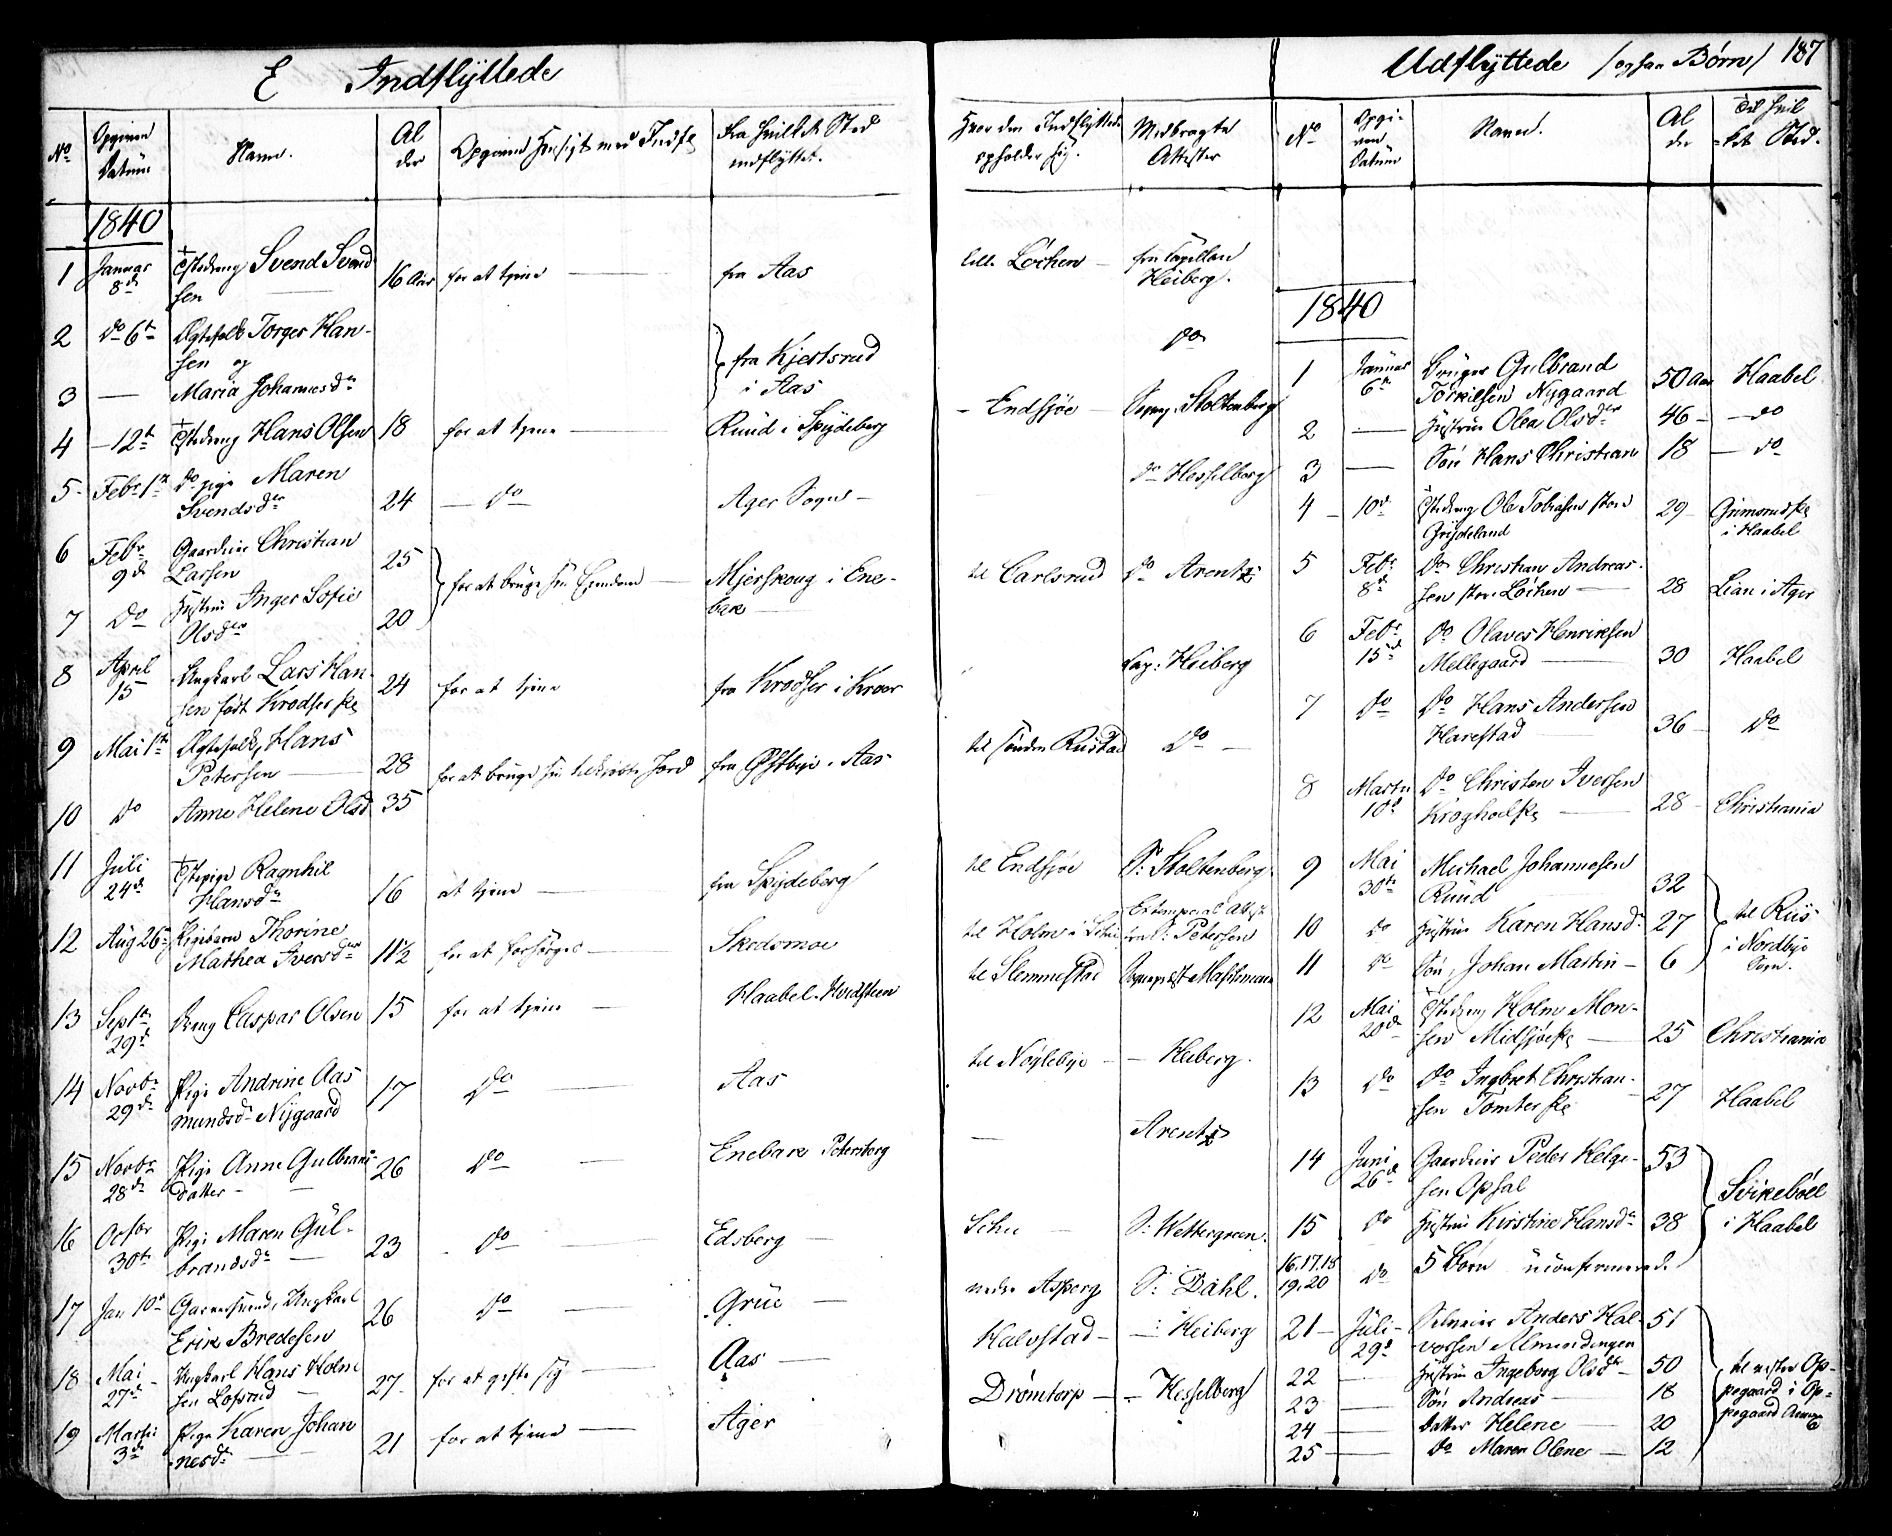 E Indflyttede
No
Opgiven Datum
Navn.
Alder
Opgiven Hensigt med Indfl
fra hvilket Sted indflyttet.
Hvor den Indflyttede opholder sig.
Medbragte Attester
1840
1 Januar 8de Tjstedreng Svend Svendsen 16 Aar for at tjene fra Aas till Løchen fra Capellan Heiberg.
2 do 6te Ægtefolk Torger Hansen og fra Kjerlsrud i Aas do
3 Maria Johannesdr
4 12te Tjstedreng Hans Olsen 18 for at tjene Ruud i Spydeberg Endsjøe Sogpr. Stoltenberg
5 Febr 1ste do pige Maren Svendsdr 24 do Ager Sogn do Hesselberg
6 Febr 9de Gaardmr Christian Larsen 25 for at bruge sin Eiendom Mjerskoug i Enebak til Carlsrud do Arentz
7 do Hustru Inger Sofie Olsdtr 20
8 April 15 Ungkarl Lars Hansen født Krodser 24 for at tjene fra Krodser i Kroer Cap: Heiberg
9 Mai 1ste Ægtefolk, Hans Petersen 28 for at bruge sin tilkjøbte Jord fra Østbye i Aas til søndre Rustad do
10 do Anne Helene Olsd 35
11 Juli 24de Tjstepige Ragnhil Hansdr 16 at tjene fra Spydeberg til Endsjøe S: Stoltenberg
12 Aug 26 Pigebarn Thorine Mathea Iversdtr 11½ for at forsørges Skedsmoe til Holm Extemporal Attest fra P: Petersen
13 Septbr 29de Dreng Caspar Olsen 15 for at tjene Haabel. Hvidsteen til Slemmestad Sogneprest Maschmann
14 Novbr 29de Pige Andrine Aasmundsdr Nygaard 17 do Aas til Nøylebye Heiberg.
15 Novbr 28de Pige Anne Gulbrandsdatter 26 do Enebak Petersborg Arentz
16 Octbr 30te Pige Maren Gulbrandsdr 23 do Edsberg Schie S: Wettergreen.
17 Jan 10de Garversvend, Ungkarl Erik Bredesen 26 do Grue nedre Asperg S: Dahl.
18 Mai 27de Ungkarl Hans Holmsen Lofsrud 27 for at gifte sig Aas Halvstad Heiberg
19 Martii 3de Pige Karen Johannesdr 21 for at tjene Ager Drømtorp Hesselberg
Udflyttede /ogsaa Børn/ 187
No
Opgiven Datum
Navne.
Alder
Til hvilket Sted.
1840
1 Januar 6te Bruger Gulbrand Torkilsen Nygaard 50 Aar Haabel
2 Hustrue Olea Olsdtr 46 do
3 Søn Hans Christian 18 do
4 10de Tjstedreng Ole Tobiasen store Grydeland 29 Grimsrud i Haabel
5 Febr 8de do Christian Andreassen store Løchen 28 Lian i Ager
6 Febr 15de do Olaves Henriksen Mellegaard 30 Haabel
7 do do Hans Andersen Harestad 36 do
8 Martii 10de do Christen Iversen Kroghoel 28 Christiania
9 Mai 30te Michael Johannesen Ruud 32 til Riis i Nordbye Sogn.
10 do Hustrue Karen Hansdr 27
11 do Søn, Johan Martin 6
12 Mai 20de Tjstedreng Holm Monsen Midsjøe 25 Christiania
13 do do Ingbret Christiansen Tomter 27 Haabel
14 Juni 26de Gaardmr Peder Helgesen Opsal 53 Svikebøel i Haabel
15 do Hustru Kirstine Hansdr 38
16.17.18 19.20 do 5 Børn uconfirmerede
21 Juli 29de Selveier Anders Halvorsen Almindingen 51 til vestre Oppegaard i Oppegaard Annex
22 Hustru Ingeborg Olsdtr 50
23 Søn Andreas 18
24 Datter Helene 20
25 do Maren Olene 12